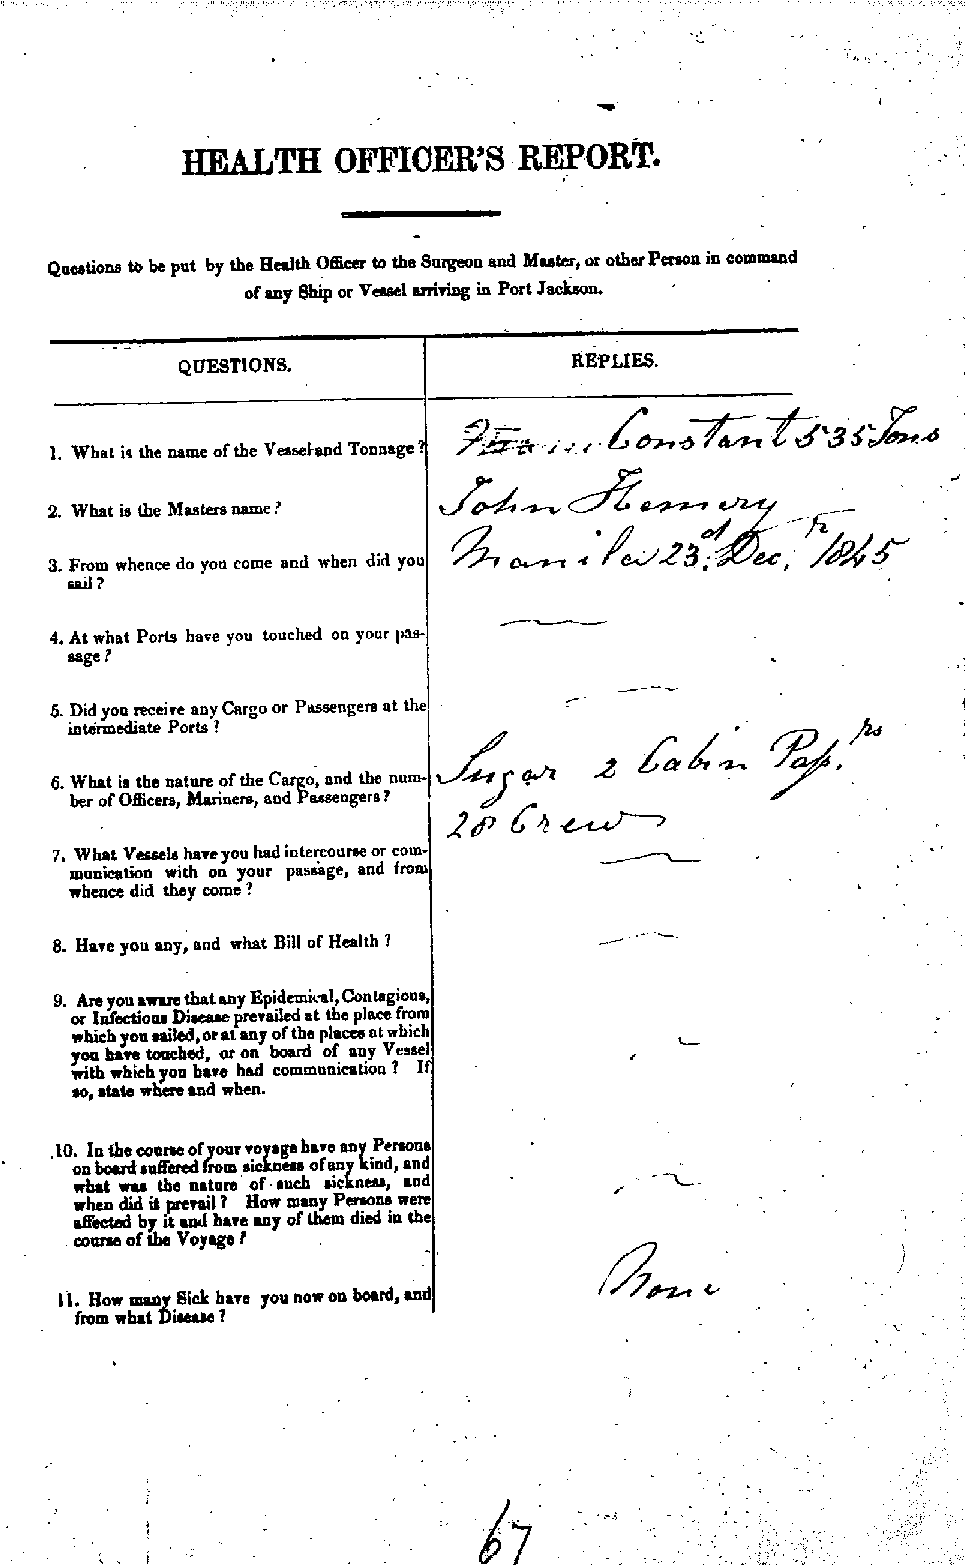 HEALTH OFFICER'S REPORT.
Questions to be put by the Health Officer to the Surgeon and Master, or other Person in command
of any Ship or Vessel arriving in Port Jackson.
QUESTIONS.
REPLIES.
1. What is the name of the Vessel and Tonnage?
Constant 535 Tons
2. What is the Masters name?
John Hemery
3. From whence do you come and when did you
sail?
Manila 23d. Dec.r 1845
4. At what Ports have you touched on your pas-
sage?
5. Did you receive any Cargo or Passengers at the
intermediate Ports?
6. What is the nature of the Cargo, and the num-
ber of Officers, Mariners, and Passengers?
Sugar 2 Cabin Pass.rs
28 Crew
7. What Vessels have you had intercourse or com-
munication with on your passage, and from
whence did they come?
8. Have you any, and what Bill of Health?
9. Are you aware that any Epidemical, Contagious,
or Infectious Disease prevailed at the place from
which you sailed, or at any of the places at which
you have touched, or on board of any Vessel
with which you have had communication? If
so, state where and when.
10. In the course of your voyage have any Persons
on board suffered from sickness of any kind, and
what was the nature of such sickness, and
when did it prevail? How many Persons were
affected by it and have any of them died in the
course of the Voyage?
11. How many Sick have you now on board, and
from what Disease?
None
67